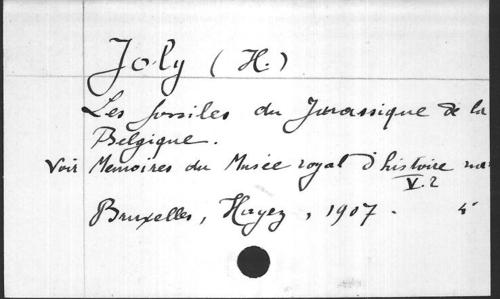 Joly (H.)
Les fossiles du Jurassique de la
Belgique.
Voir Memoires du Musée royal d'histoire na
V. 2
Bruxelles, Hayez, 1907. 4°